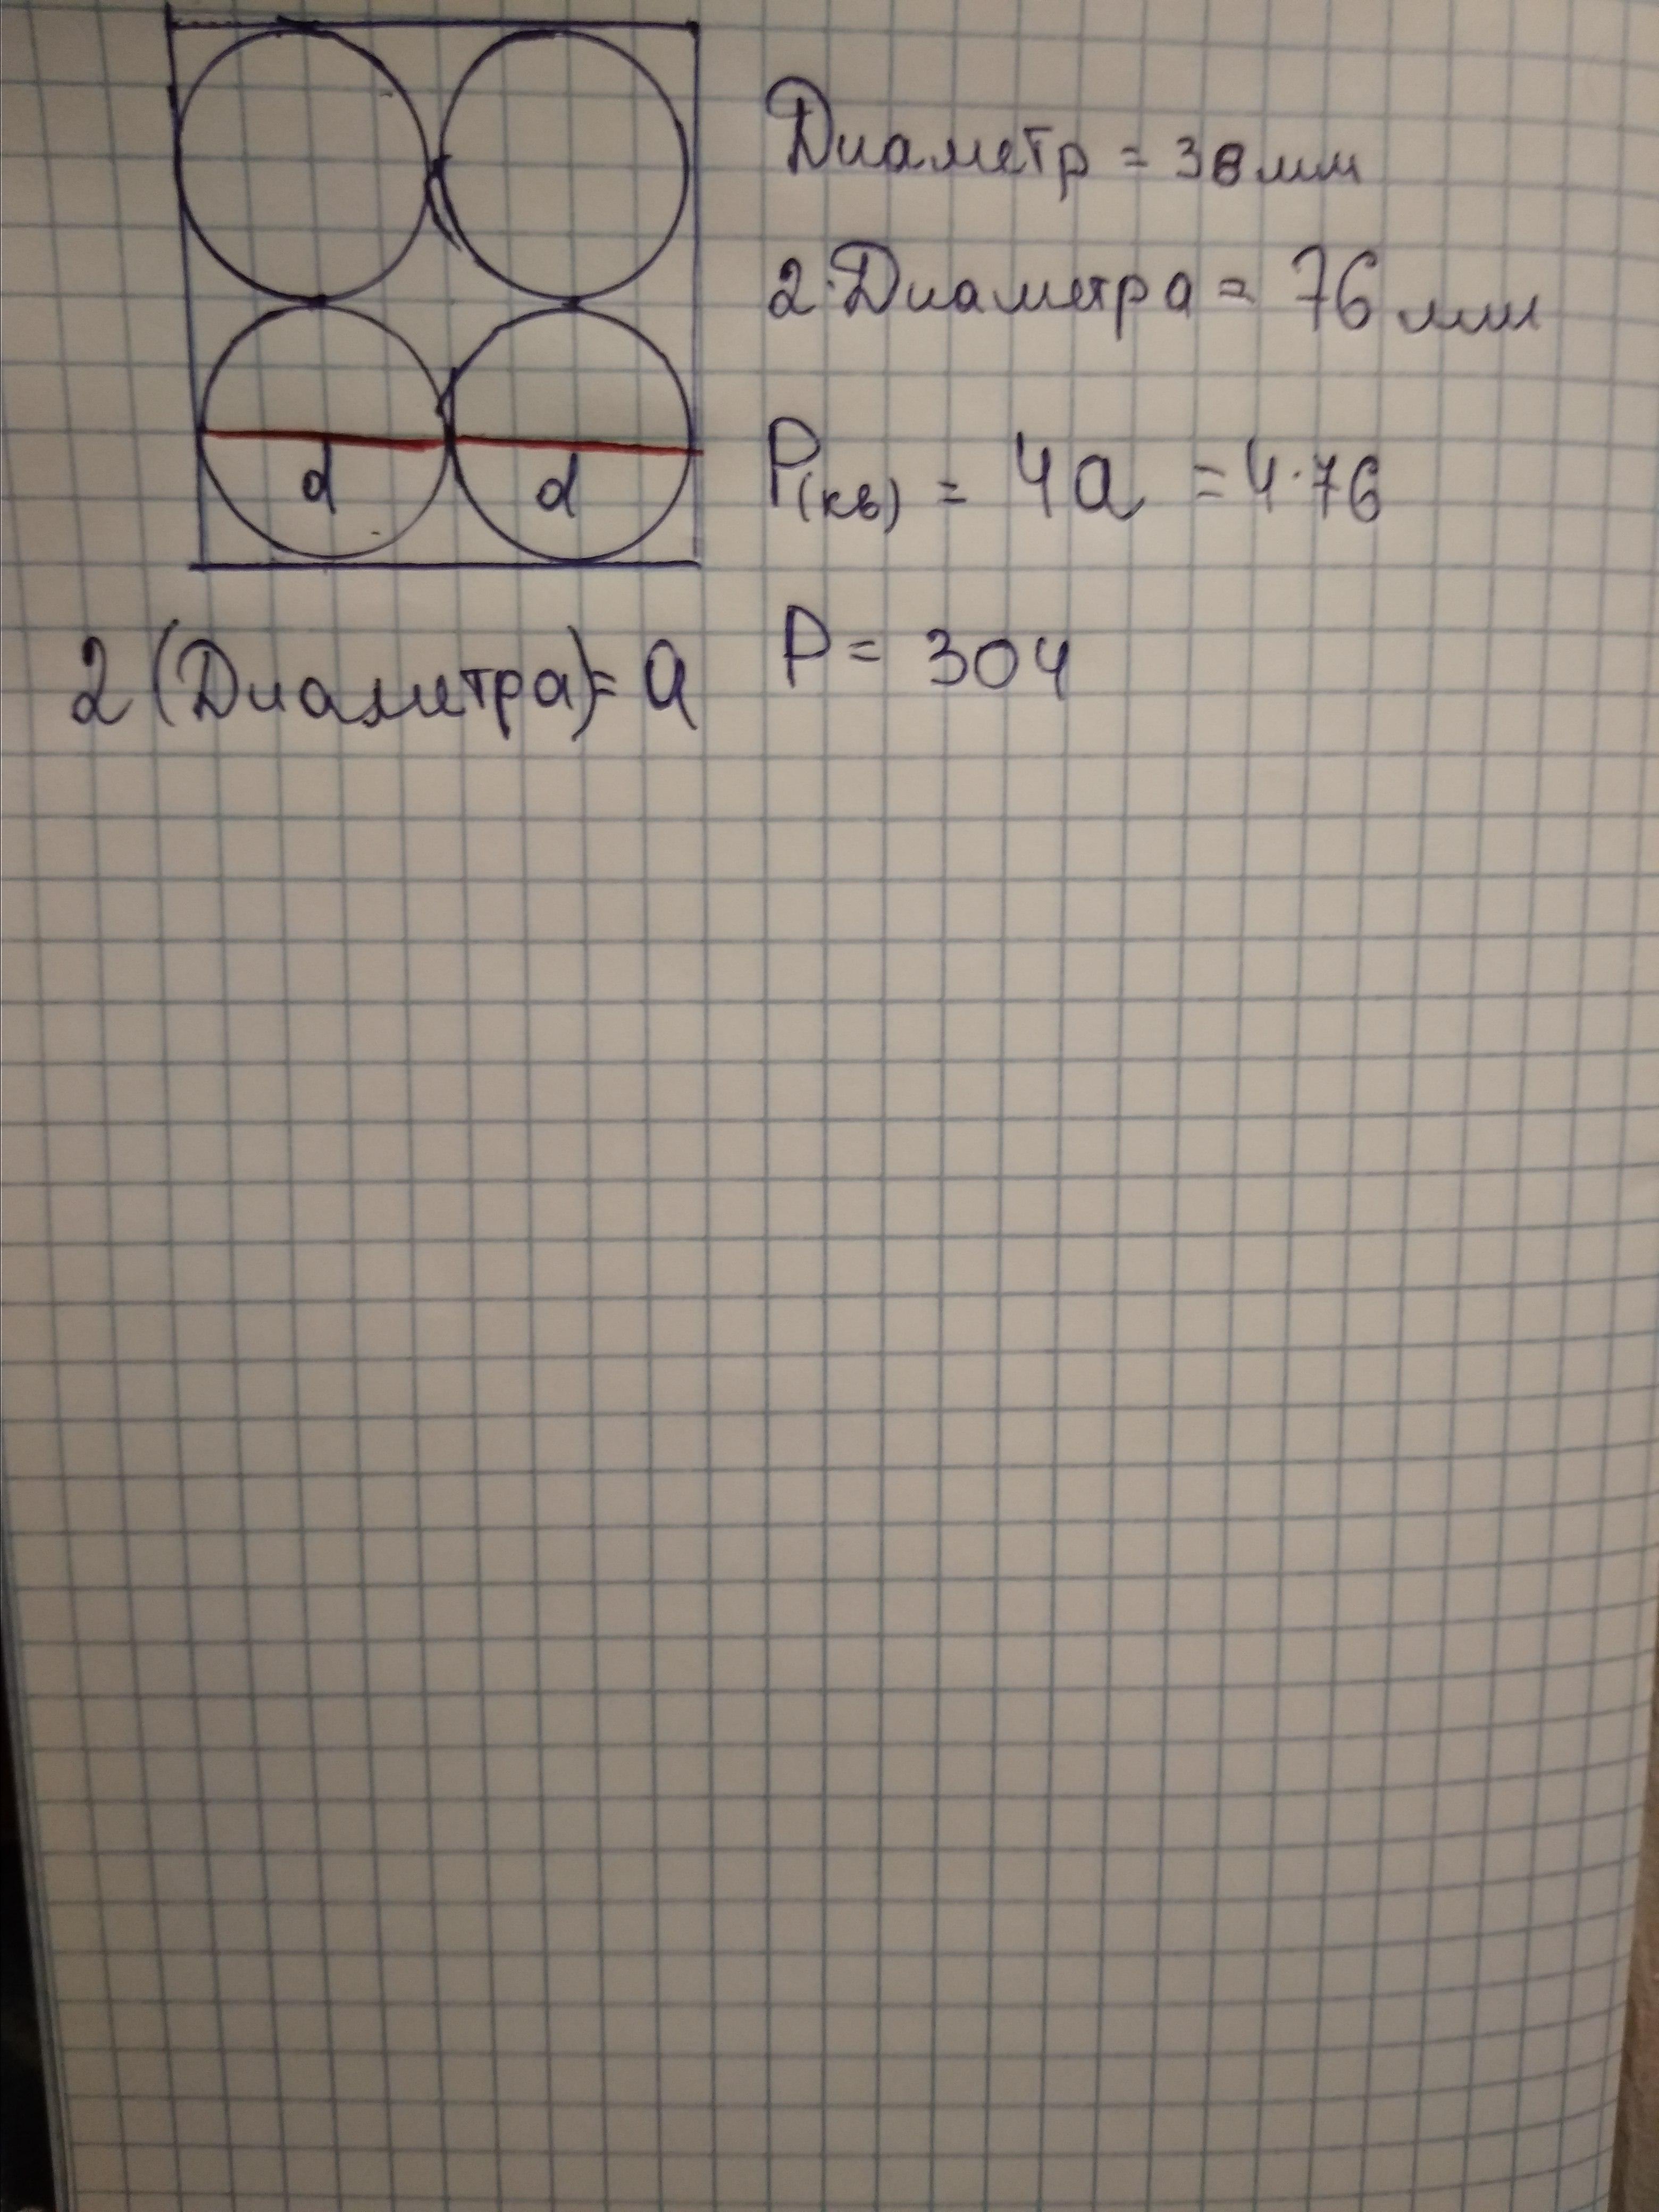 Диаметр = 38мм
2·Диаметра = 76 мм
d d
P(кв) = 4a = 4·76
P = 304
2(Диаметра) = a